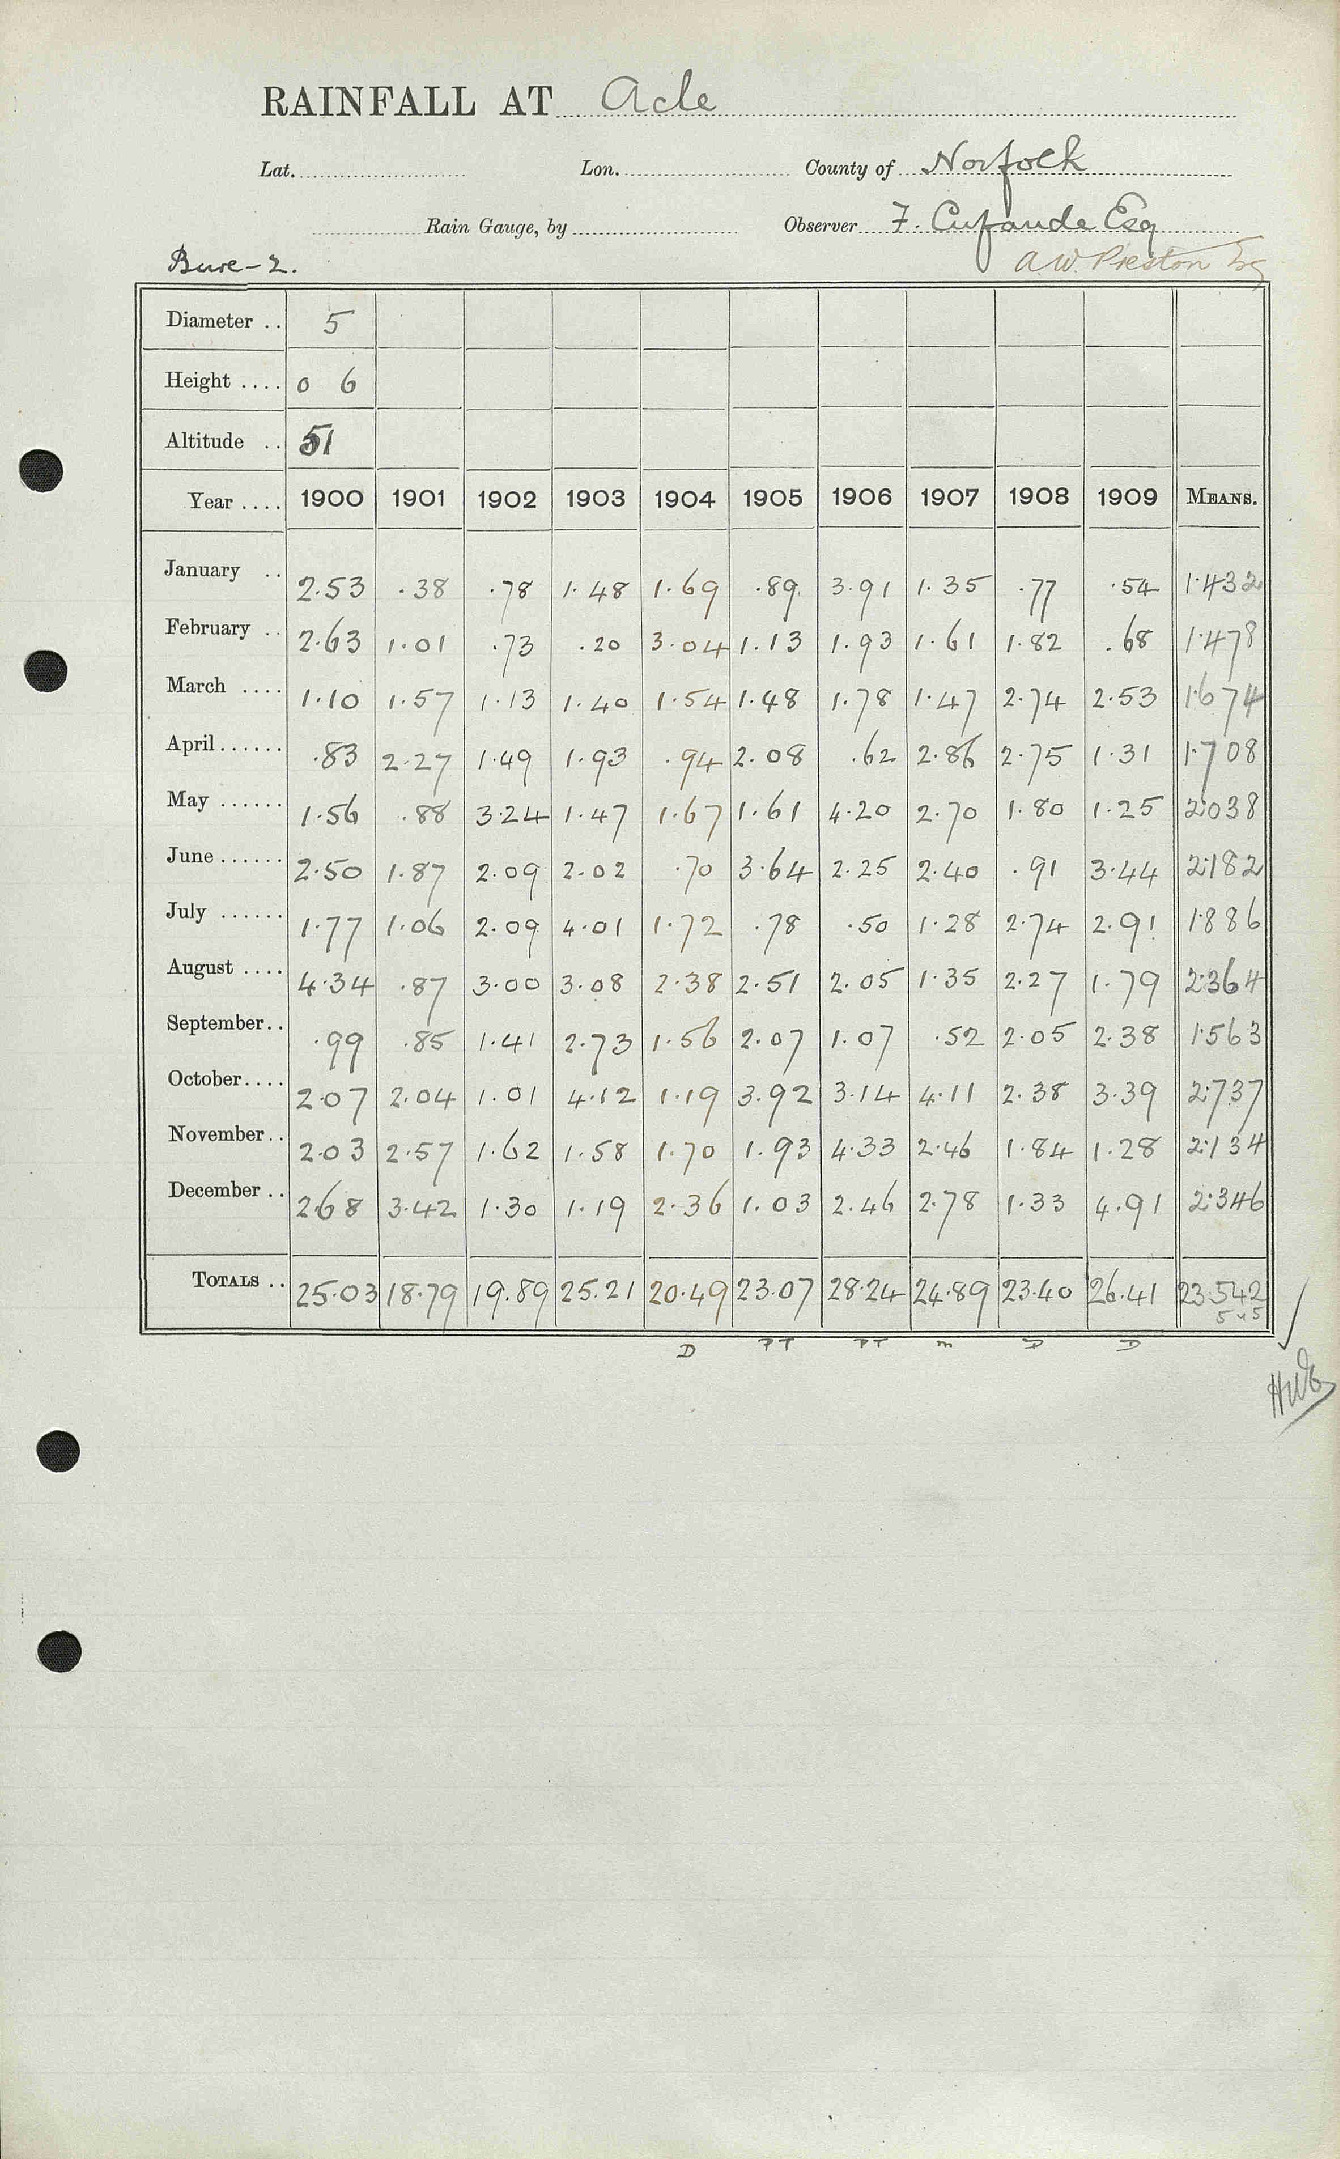 RAINFALL AT Acle
Lat. Lon. County of Norfolk
Rain Gauge, by Observer F. Cufaude Esq
Bure - 2. A.W. Preston Esq
Diameter .. 5
Height .... 0 6
Altitude .. 51
Year .... 1900 1901 1902 1903 1904 1905 1906 1907 1908 1909 MEANS.
January .. 2.53 .38 .78 1.48 1.69 .89 3.91 1.35 .77 .54 1.432
February .. 2.63 1.01 .73 .20 3.04 1.13 1.93 1.61 1.82 .68 1.478
March .... 1.10 1.57 1.13 1.40 1.54 1.48 1.78 1.47 2.74 2.53 1.674
April ...... .83 2.27 1.49 1.93 .94 2.08 .62 2.86 2.75 1.31 1.708
May ...... 1.56 .88 3.24 1.47 1.67 1.61 4.20 2.70 1.80 1.25 2.038
June ...... 2.50 1.87 2.09 2.02 .70 3.64 2.25 2.40 .91 3.44 2.182
July ...... 1.77 1.06 2.09 4.01 1.72 .78 .50 1.28 2.74 2.91 1.886
August .... 4.34 .87 3.00 3.08 2.38 2.51 2.05 1.35 2.27 1.79 2.364
September.. .99 .85 1.41 2.73 1.56 2.07 1.07 .52 2.05 2.38 1.563
October.... 2.07 2.04 1.01 4.12 1.19 3.92 3.14 4.11 2.38 3.39 2.737
November.. 2.03 2.57 1.62 1.58 1.70 1.93 4.33 2.46 1.84 1.28 2.134
December .. 2.68 3.42 1.30 1.19 2.36 1.03 2.46 2.78 1.33 4.91 2.346
TOTALS .. 25.03 18.79 19.89 25.21 20.49 23.07 28.24 24.89 23.40 26.41 23.542
D PT PT m D D